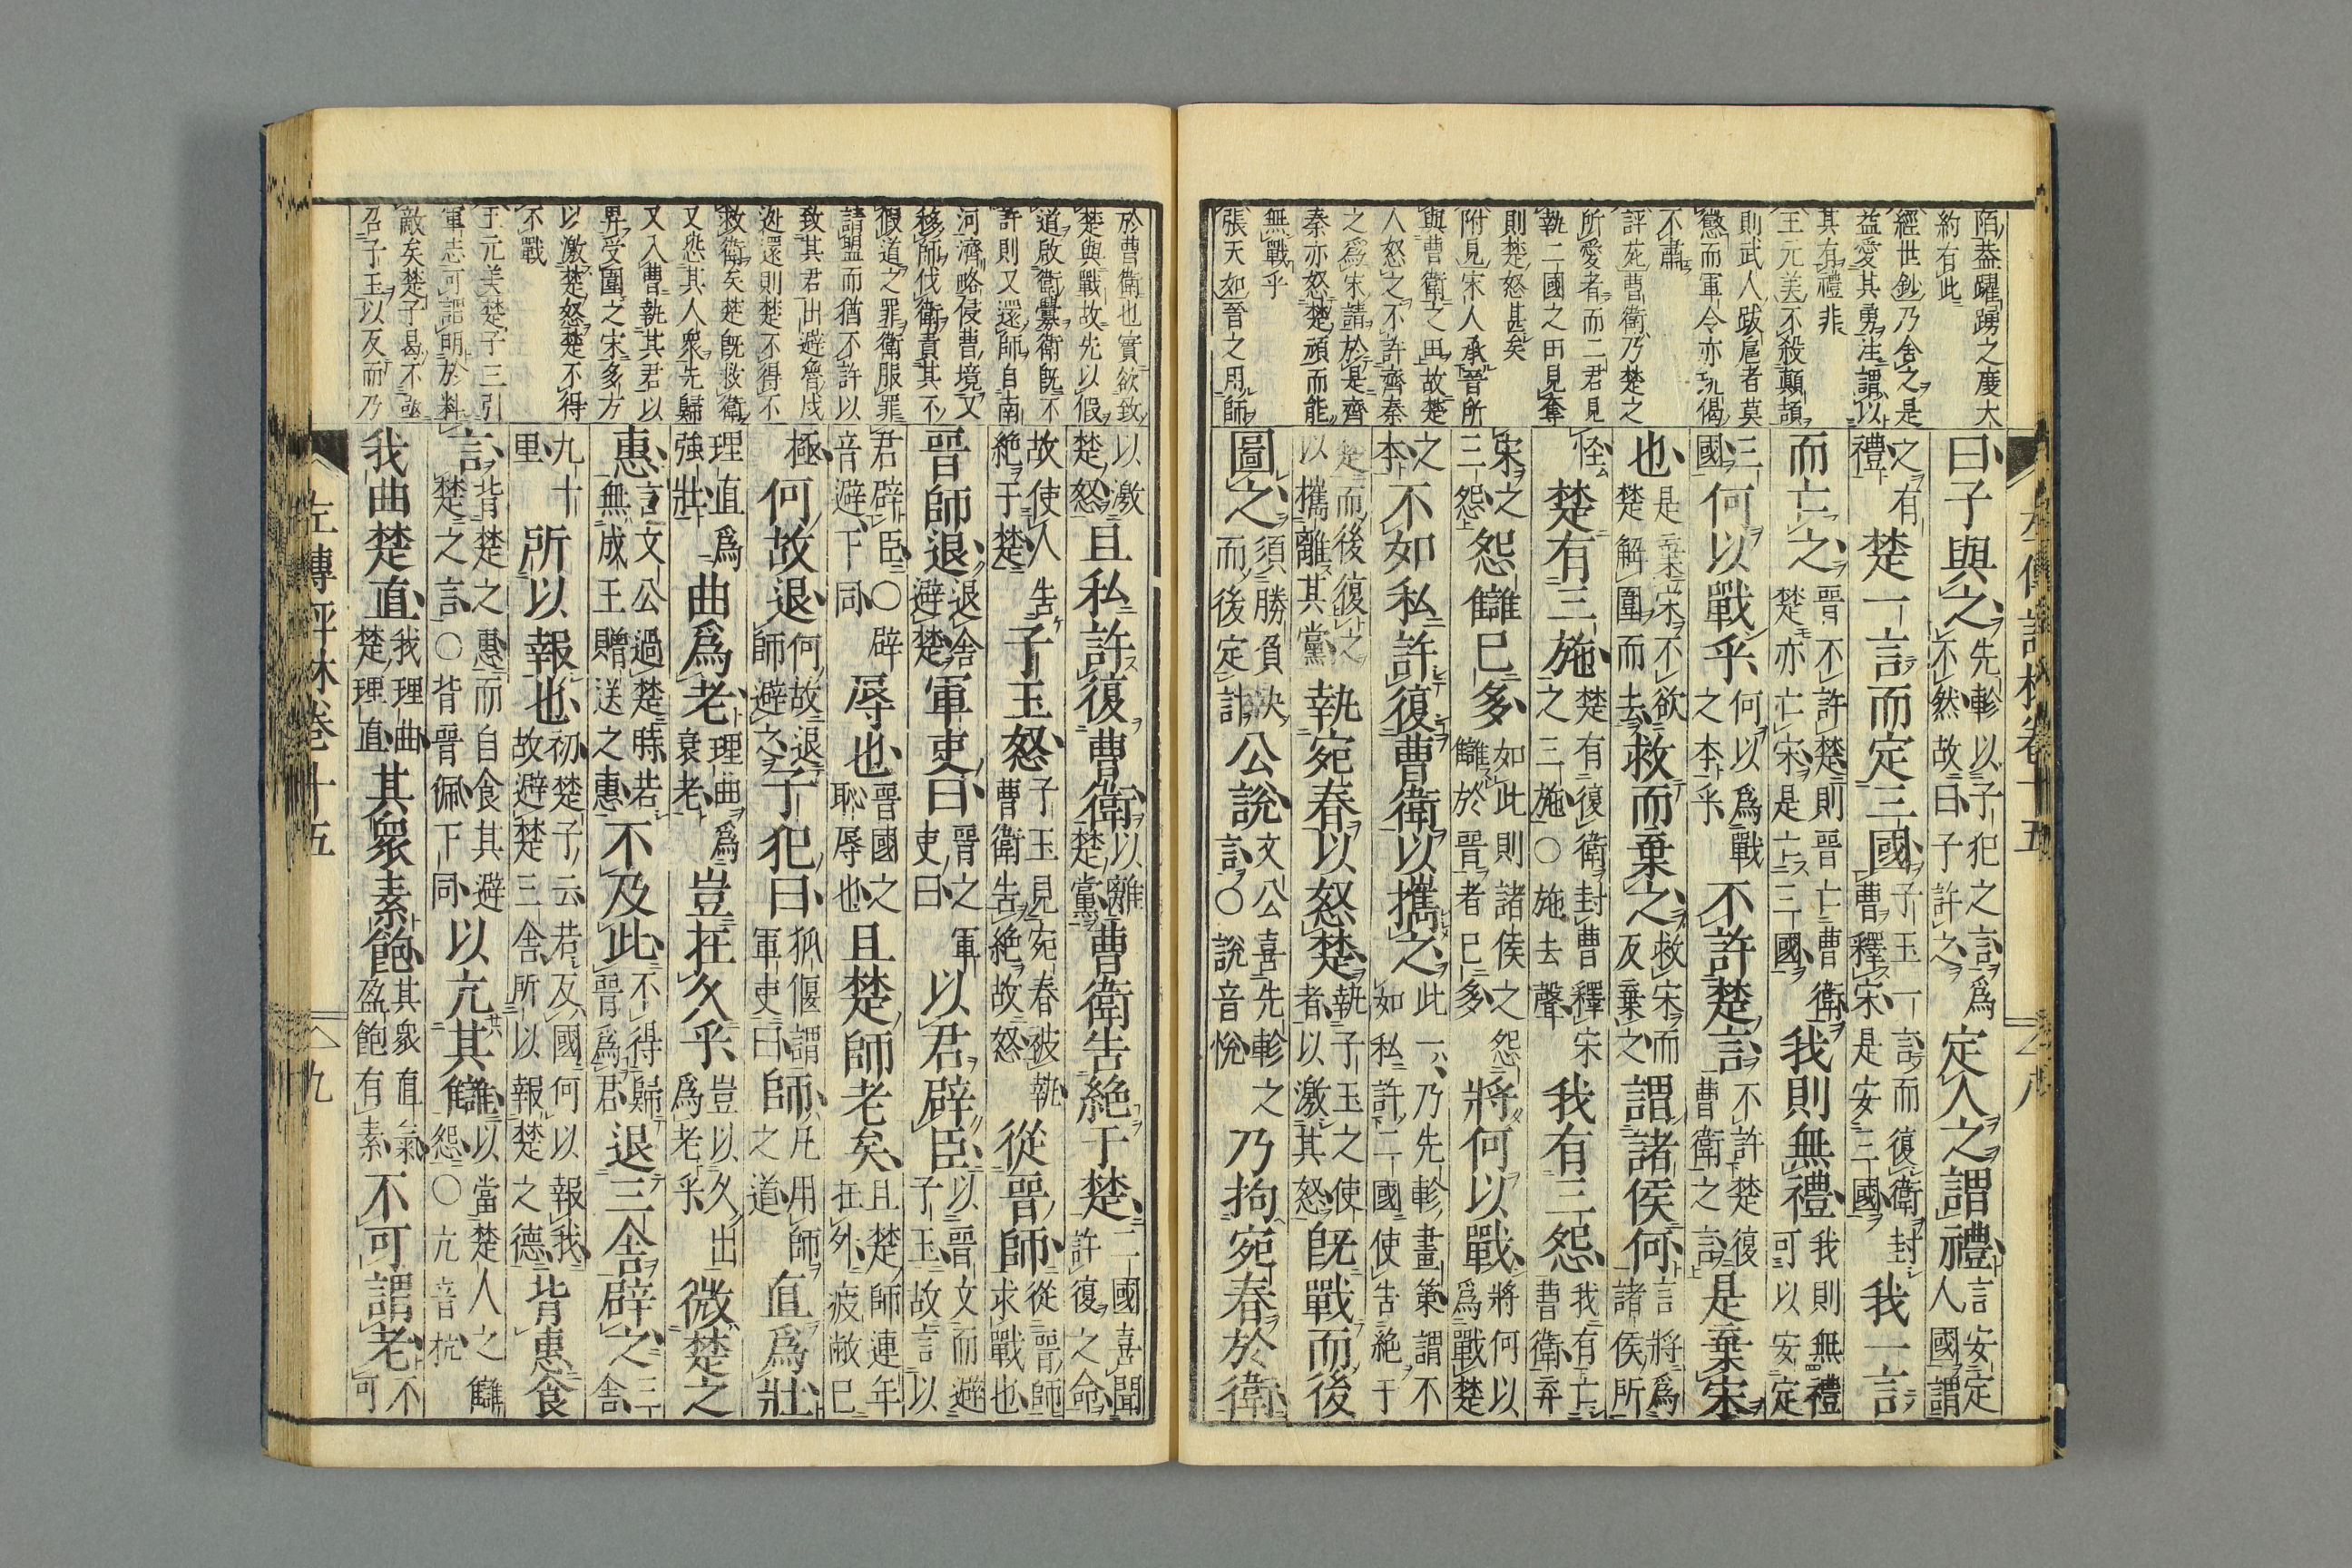 陌葢躍踴之度大
約有此
經世鈔乃舍之是
益愛其勇注謂以
其有禮非
王元美不殺顛頡
則武人跋扈者莫
懲而軍令亦玩偈
不肅
評苑曹衛乃楚之
所愛者而二君見
執二國之田見奪
則楚怒甚矣
附見宋人承晉所
與曹衛之田故楚
人怒之不許齊秦
之爲宋請於是齊
秦亦怒楚頑而能
無戰乎
張天如晉之用師
曰子與之先軫以子犯之言爲不然故曰子許之定人之謂禮言安定人國謂
之有禮楚一言而定三國子玉一言而復衛封曹釋宋是安三國我一言
而亡之晉不許楚則晉亡曹衛楚亦亡宋是亡三國我則無禮我則無禮可以安定
三國何以戰乎何以爲戰之本乎不許楚言不許楚復曹衛之言是棄宋
也是棄宋不欲楚解圍而去救而棄之救宋而反棄之謂諸侯何言將爲諸侯所
怪楚有三施楚有復衛封曹釋宋之三施○施去聲我有三怨我有亡曹衛弃
宋之三怨怨讎已多如此則諸侯之怨讎於晉者已多將何以戰將何以爲戰楚
之本不如私許復曹衛以攜之此一乃先軫畫策謂不如私許二國使告絶于
楚而後復之以攜離其黨執宛春以怒楚執子玉之使者以激其怒既戰而後
圖之須勝負決而後定計公說文公喜先軫之言○說音悅乃拘宛春於衛
於曹衛也實欲致
楚與戰故先以假
道啟衛釁衛既不
許則又還師自南
河濟略侵曹境又
移師伐衛責其不
假道之罪衛服罪
請盟而猶不許以
致其君出避魯戍
迯還則楚不得不
救衛矣楚既救衛
又悉其人衆先歸
又入曹執其君以
畀受圍之宋多方
以激楚怒楚不得
不戰
王元美楚子三引
軍志可謂明於料
敵矣楚子曷不亟
召子玉以反而乃
以激楚怒且私許復曹衛以離楚黨曹衛告絶于楚二國喜聞許復之命
故使人絶于楚告子玉怒子玉見宛春被執曹衛告絶故怒從晉師從晉師求戰也
晉師退退舍避楚軍吏曰晉之軍吏曰以君辟臣以晉文而避子玉故言以
君辟臣○辟音避下同辱也晉國之恥辱也且楚師老矣且楚師連年在外疲敝已
極何故退何故退師避之子犯曰狐偃謂軍吏曰師凡用師之道直爲壯
理直爲強壯曲爲老理曲爲衰老豈在久乎豈以久出爲老乎微楚之
惠言文公過楚時若無成王贈送之惠不及此不得歸晉爲君退三舍辟之三舍
九十里所以報也初楚子云若反國何以報我故避楚三舍所以報楚之德背惠食
言背楚之惠而自食其避楚之言○背晉佩下同以亢其讎以當楚人之讎怨○亢音抗
我曲楚直我理曲楚理直其衆素飽其衆直氣盈飽有素不可謂老不可
左傳評林卷十五
九